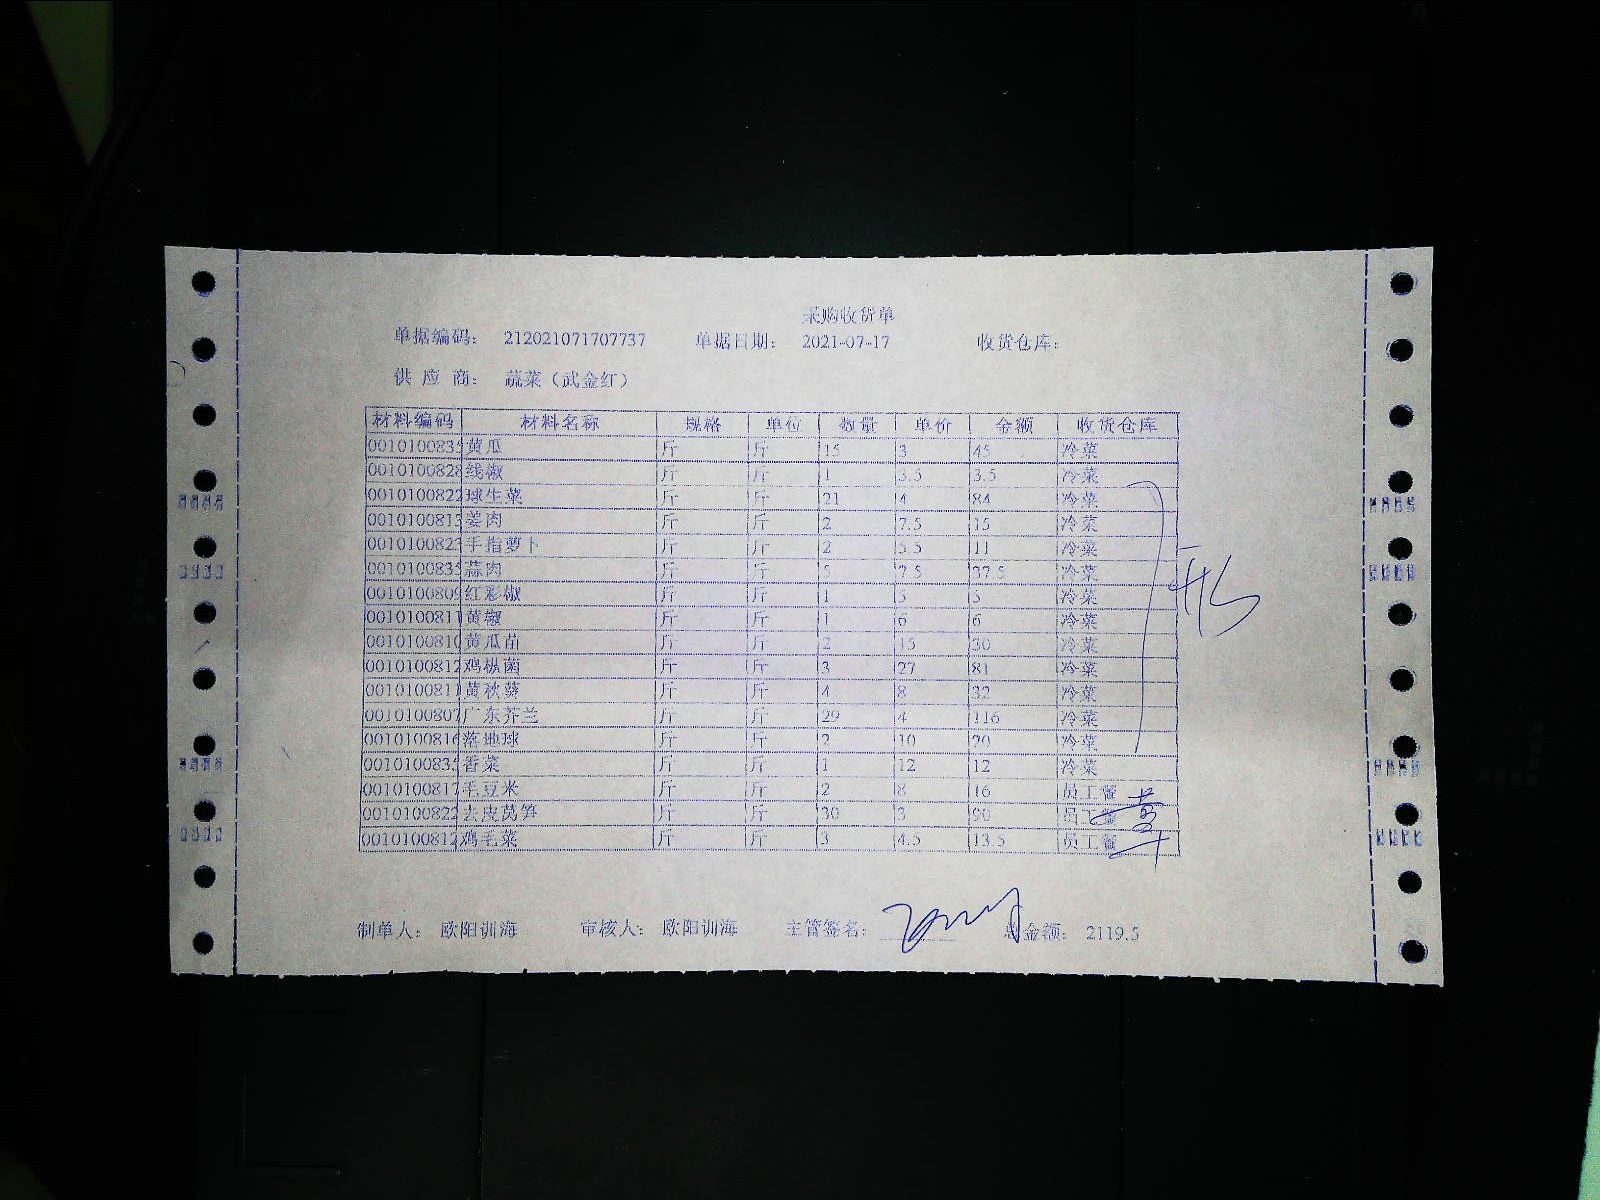 采购收货单
单据编码： 212021071707737 单据日期： 2021-07-17 收货仓库：
供 应 商： 蔬菜（武金红）
材料编码 材料名称 规格 单位 数量 单价 金额 收货仓库
0010100835 黄瓜 斤 斤 15 3 45 冷菜
0010100828 线椒 斤 斤 1 3.5 3.5 冷菜
0010100822 球生菜 斤 斤 21 4 84 冷菜
0010100813 姜肉 斤 斤 2 7.5 15 冷菜
0010100823 手指萝卜 斤 斤 2 5.5 11 冷菜
0010100835 蒜肉 斤 斤 5 7.5 37.5 冷菜
0010100809 红彩椒 斤 斤 1 5 5 冷菜
0010100811 黄椒 斤 斤 1 6 6 冷菜
0010100810 黄瓜苗 斤 斤 2 15 30 冷菜
0010100812 鸡枞菌 斤 斤 3 27 81 冷菜
0010100811 黄秋葵 斤 斤 4 8 32 冷菜
0010100807 广东芥兰 斤 斤 29 4 116 冷菜
0010100816 落地球 斤 斤 2 10 20 冷菜
0010100835 香菜 斤 斤 1 12 12 冷菜
0010100817 毛豆米 斤 斤 2 8 16 员工餐
0010100822 去皮莴笋 斤 斤 30 3 90 员工餐
0010100812 鸡毛菜 斤 斤 3 4.5 13.5 员工餐
制单人： 欧阳训海 审核人： 欧阳训海 主管签名： 总金额： 2119.5